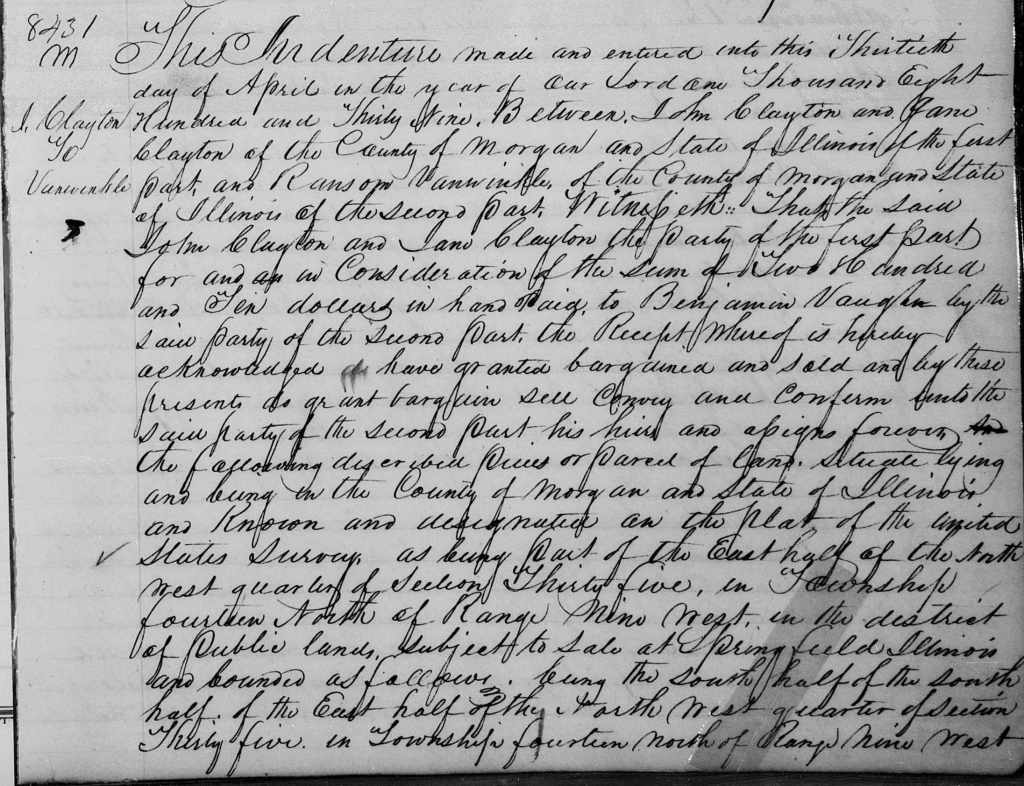 8431
M
I. Clayton
To
Vanwinkle
This Indenture made and entered into this Thirtieth
day of April in the year of our Lord One Thousand Eight
Hundred and Thirty Nine. Between. John Clayton and Jane
Clayton of the County of Morgan and State of Illinois of the first
part, and Ransom Vanwinkle, of the County of Morgan and State
of Illinois of the second part. Witnesseth:: That, the said
John Clayton and Jane Clayton the party of the first part
for and an in Consideration of the sum of Two Hundred
and Ten dollars in hand paid, to Benjamin Vaughn by the
said party of the second part. the Receipt Whereof is hereby
acknowledged have granted bargained and sold and by these
presents do grant bargain sell convey and confirm unto the
said party of the second part his heirs and assigns forever,
the following described piece or parcel of land. situate lying
and being in the County of Morgan and State of Illinois
and Known and designated on the plat of the united
States survey. as being part of the East half of the North
west quarter of Section Thirty five, in Township
fourteen North of Range Nine West. in the district
of public lands, subject to sale at Springfield Illinois
and bounded as follows. being the south half of the south
half. of the East half of the North West quarter of section
Thirty five. in Township fourteen north of Range Nine West